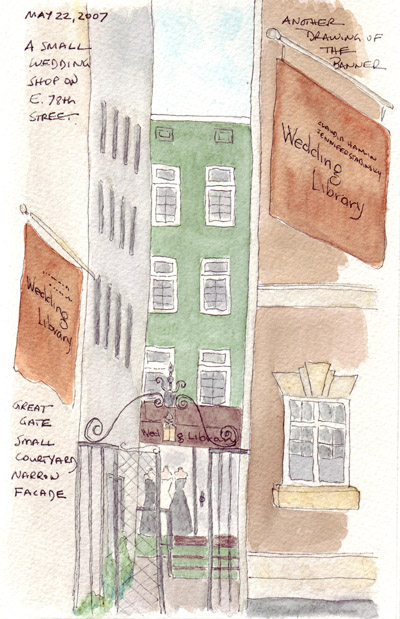 MAY 22, 2007
A SMALL
WEDDING
SHOP ON
E. 78TH
STREET.
ANOTHER
DRAWING OF
THE
BANNER
CLAUDIA HANLIN
JENNIFER ZABINSKY
Wedding
Library
Wedding
Library
Wed g Library
GREAT
GATE
SMALL
COURTYARD
NARROW
FACADE